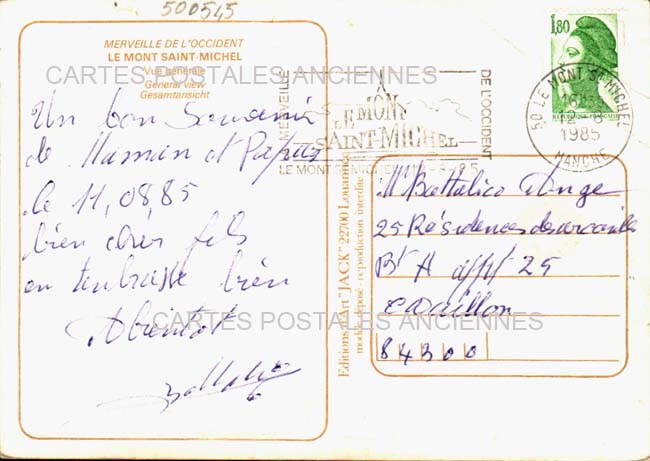 500545
MERVEILLE DE L'OCCIDENT
LE MONT SAINT-MICHEL
Vue générale
General view
Gesamtansicht
CARTES POSTALES ANCIENNES
Un bon Souvenir
de Maman et Papa
le 11,08,85
bien cher fils
en tenbrasse bien
Abientot
Editions d'Art "JACK" 22700 Louannec
modèle déposé - reproduction interdite
MERVEILLE
LE MONT
SAINT-MICHEL
DE L'OCCIDENT
LE MONT SAINT-MICHEL
1,80
50 LE MONT ST MICHEL
16H
12
1985
MANCHE
M Battalico Ange
25 Résidences des
Bt A appt 25
Cavaillon
84300
CARTES POSTALES ANCIENNES